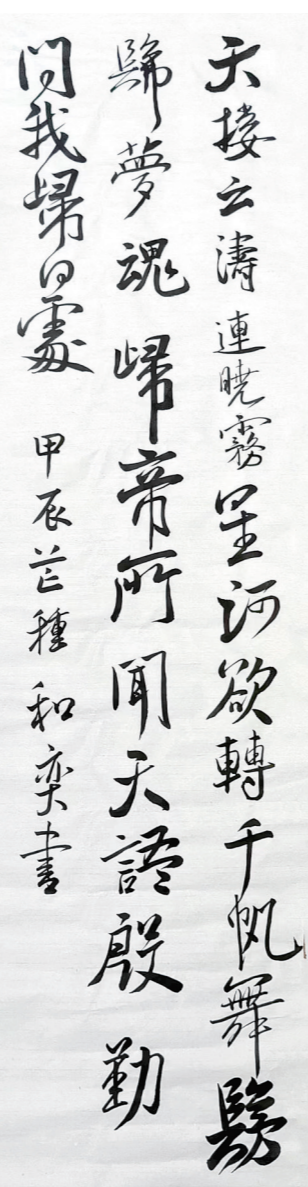 天接云濤連曉霧星河欲轉千帆舞髣
髴夢魂歸帝所聞天語殷勤
問我歸何處 甲辰芒種和奕書